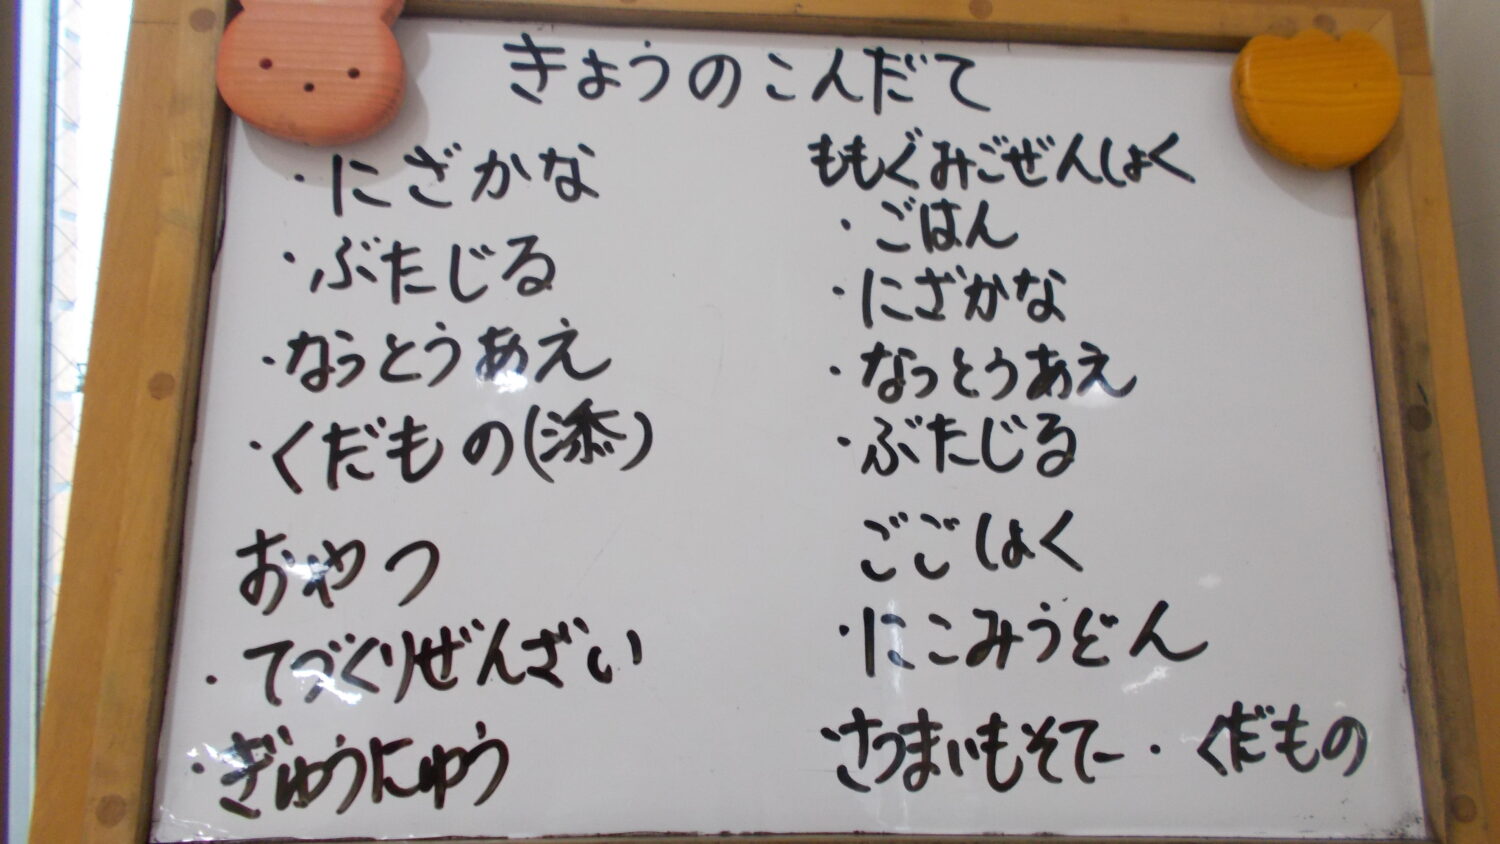 きょうのこんだて
・にざかな
・ぶたじる
・なっとうあえ
・くだもの(添)
おやつ
・てづくりぜんざい
・ぎゅうにゅう
ももぐみごぜんしょく
・ごはん
・にざかな
・なっとうあえ
・ぶたじる
ごごしょく
・にこみうどん
・さつまいもそてー・くだもの